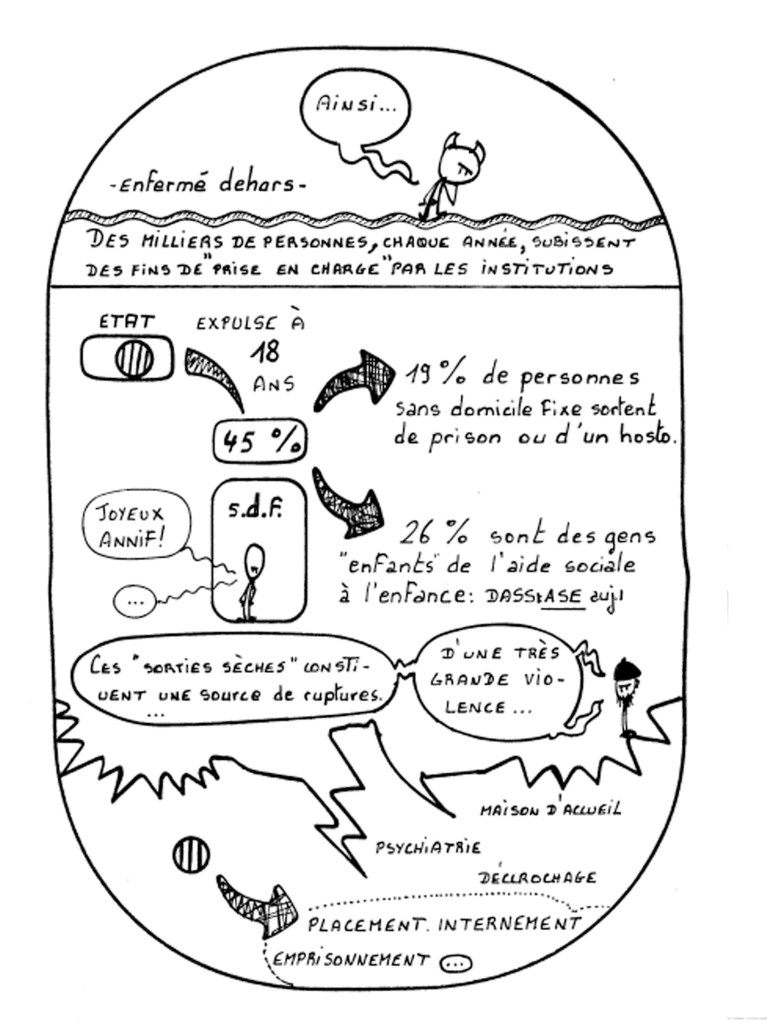 AINSI...
-Enfermé dehors-
DES MILLIERS DE PERSONNES, CHAQUE ANNÉE, SUBISSENT
DES FINS DE "PRISE EN CHARGE" PAR LES INSTITUTIONS
ETAT
EXPULSE À
18
ANS
19 % de personnes
sans domicile fixe sortent
de prison ou d'un hosto.
45 %
S.d.f.
JOYEUX
ANNIF!
...
26 % sont des gens
"enfants" de l'aide sociale
à l'enfance: DASS ASE auj!
CES "SORTIES SÈCHES" CONSTI-
UENT UNE SOURCE de RUPTURES.
...
D'UNE TRÈS
GRANDE VIO-
LENCE...
MAISON D'ACCUEIL
PSYCHIATRIE
DÉCROCHAGE
PLACEMENT. INTERNEMENT
EMPRISONNEMENT ...